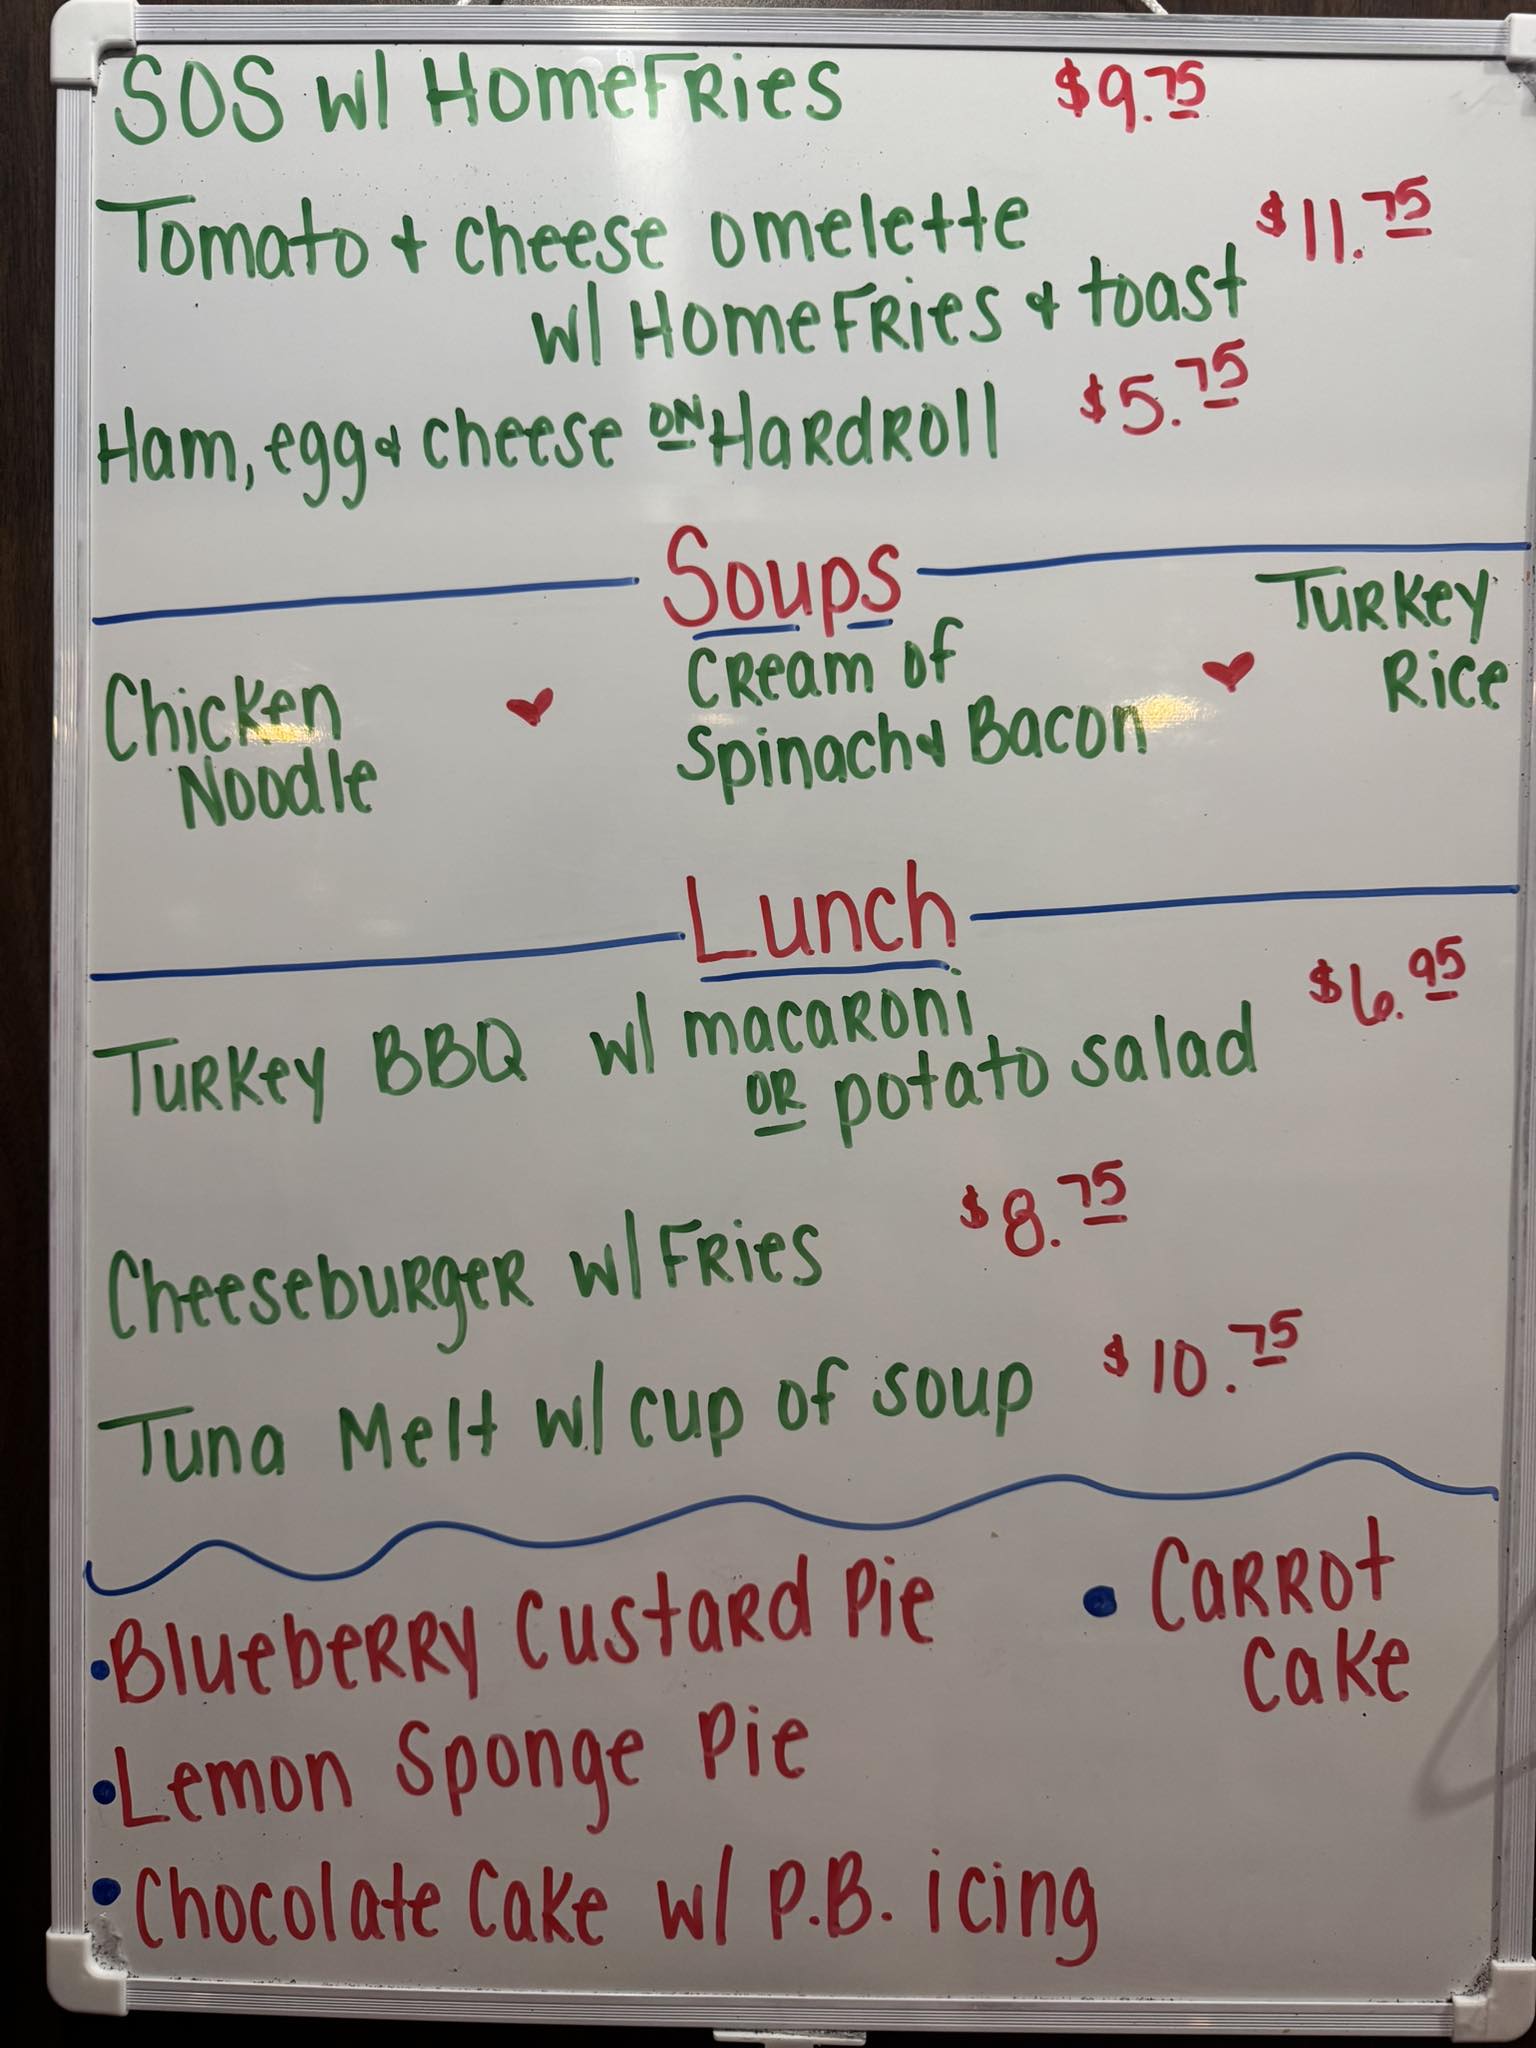 SOS w/ HomeFries $9.75
Tomato + cheese omelette $11.75
w/ HomeFries + toast
Ham, egg + cheese on Hardroll $5.75
Soups
Chicken Noodle
Cream of Spinach + Bacon
Turkey Rice
Lunch
Turkey BBQ w/ macaroni $6.95
or potato salad
Cheeseburger w/ Fries $8.75
Tuna Melt w/ cup of soup $10.75
• Blueberry Custard Pie
• Carrot Cake
• Lemon Sponge Pie
• Chocolate Cake w/ P.B. icing